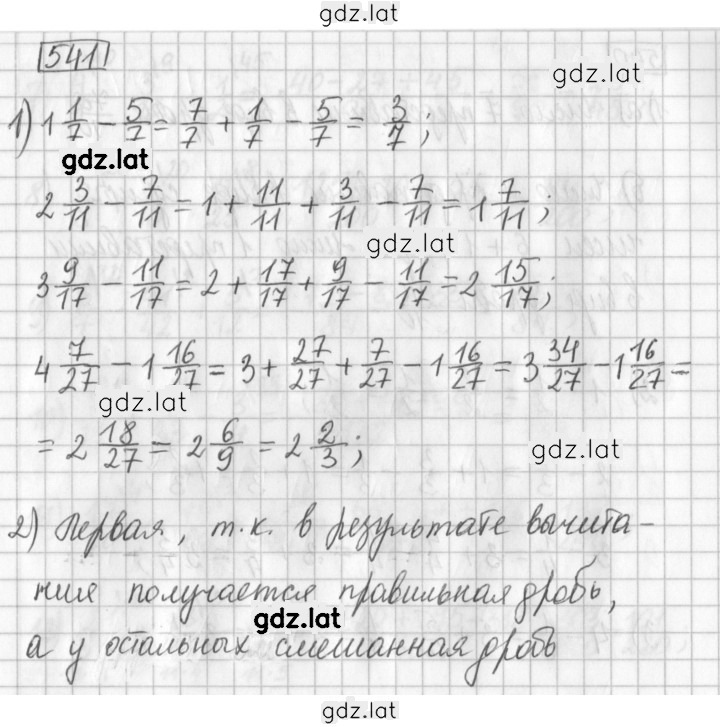 gdz.lat
541
gdz.lat
1) 1 1/7 − 5/7 = 7/7 + 1/7 − 5/7 = 3/7;
gdz.lat
2 3/11 − 7/11 = 1 + 11/11 + 3/11 − 7/11 = 1 7/11;
gdz.lat
3 9/17 − 11/17 = 2 + 17/17 + 9/17 − 11/17 = 2 15/17;
4 7/27 − 1 16/27 = 3 + 27/27 + 7/27 − 1 16/27 = 3 34/27 − 1 16/27 =
gdz.lat
= 2 18/27 = 2 6/9 = 2 2/3;
gdz.lat
2) Первая, т.к. в результате вычита-
ния получается правильная дробь,
gdz.lat
а у остальных смешанная дробь
gdz.lat